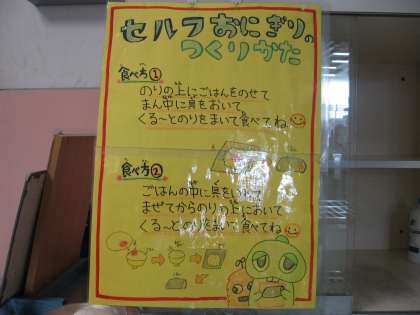 セルフおにぎりの
つくりかた
食べ方①
のりの上にごはんをのせて
まん中に具をおいて
くる〜とのりをまいて食べてね
食べ方②
ごはんの中に具をいれて
まぜてからのりの上において
くる〜とのりをまいて食べてね